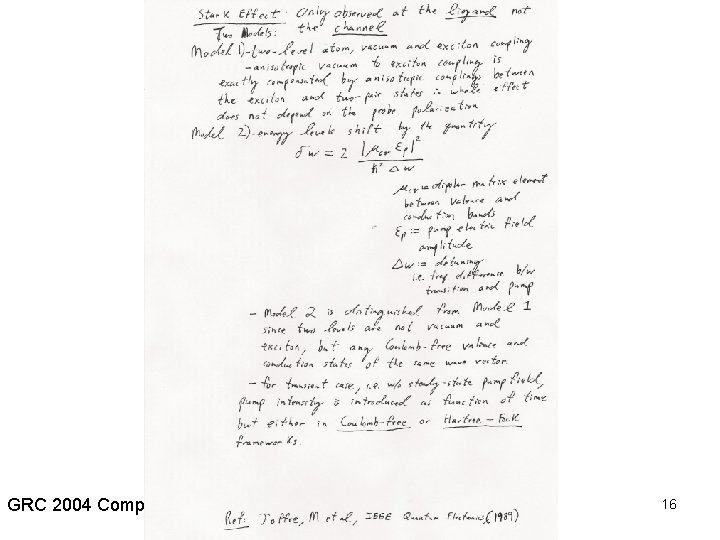 Stark Effect: Only observed at the ligand not
Two Models: the channel
Model 1)-two-level atom, vacuum and exciton coupling
-anisotropic vacuum to exciton coupling is
exactly compensated by anisotropic couplings between
the exciton and two-pair states is whole effect
does not depend on the probe polarization
Model 2)-energy levels shift by the quantity
δw = 2 |μcv εp|² / ħ² Δw
μcv = dipolar matrix element
between valence and
conduction bands
εp := pump electric field
amplitude
Δw := detuning
i.e. freq. difference b/w
transition and pump
- Model 2 is distinguished from Model 1
since two levels are not vacuum and
exciton, but any Coulomb-free valence and
conduction states of the same wave vector.
- for transient case, i.e. w/o steady-state pump field,
pump intensity is introduced as function of time
but either in Coulomb-free or Hartree-Fock
frameworks.
GRC 2004 Comp
16
Ref: Joffre, M et al, IEEE Quantum Electronics, (1989)